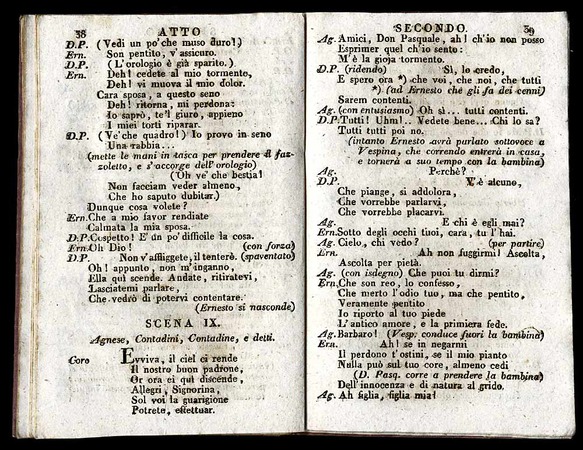 38 ATTO
D.P. (Vedi un po' che muso duro!)
Ern. Son pentito, v'assicuro.
D.P. (L'orologio è già sparito.)
Ern. Deh! cedete al mio tormento,
Deh! vi muova il mio dolor.
Cara sposa, a questo seno
Deh! ritorna, mi perdona:
Io saprò, te'l giuro, appieno
I miei torti riparar.
D.P. (Ve' che quadro!) Io provo in seno
Una rabbia...
(mette le mani in tasca per prendere il faz-
zoletto, e s'accorge dell'orologio)
(Uh ve' che bestia!
Non facciam veder almeno,
Che ho saputo dubitar.)
Dunque cosa volete?
Ern. Che a mio favor rendiate
Calmata la mia sposa.
D.P. Cospetto! E' un po' difficile la cosa.
Ern. Oh Dio! (con forza)
D.P. Non v'affliggete, il tenterò. (spaventato)
Oh! appunto, non m'inganno,
Ella qui scende. Andate, ritiratevi,
Lasciatemi parlare,
Che vedrò di potervi contentare.
(Ernesto si nasconde)
SCENA IX.
Agnese, Contadini, Contadine, e detti.
Coro Evviva, il ciel ci rende
Il nostro buon padrone,
Or ora ei qui discende,
Allegri, Signorina,
Sol voi la guarigione
Potrete, effettuar.
SECONDO. 39
Ag. Amici, Don Pasquale, ah! ch'io non posso
Esprimer quel ch'io sento:
M'è la gioja tormento.
D.P. (ridendo) Sì, lo credo,
E spero ora *) che voi, che noi, che tutti
*) (ad Ernesto che gli fa dei cenni)
Sarem contenti.
Ag. (con entusiasmo) Oh sì... tutti contenti.
D.P. Tutti! Uhm!.. Vedete bene... Chi lo sa?
Tutti tutti poi no.
(intanto Ernesto avrà parlato sottovoce a
Vespina, che correndo entrerà in casa,
e tornerà a suo tempo con la bambina)
Ag. Perchè?
D.P. V'è alcuno,
Che piange, si addolora,
Che vorrebbe parlarvi,
Che vorrebbe placarvi.
Ag. E chi è egli mai?
Ern. Sotto degli occhi tuoi, cara, tu l'hai.
Ag. Cielo, chi vedo? (per partire)
Ern. Ah non fuggirmi! Ascolta,
Ascolta per pietà.
Ag. (con isdegno) Che puoi tu dirmi?
Ern. Che son reo, lo confesso,
Che merto l'odio tuo, ma che pentito,
Veramente pentito
Io riporto al tuo piede
L'antico amore, e la primiera fede.
Ag. Barbaro! (Vesp. conduce fuori la bambina)
Ern. Ah! se in negarmi
Il perdono t'ostini, se il mio pianto
Nulla può sul tuo core, almeno cedi
(D. Pasq. corre a prendere la bambina)
Dell'innocenza e di natura al grido.
Ag. Ah figlia, figlia mia!